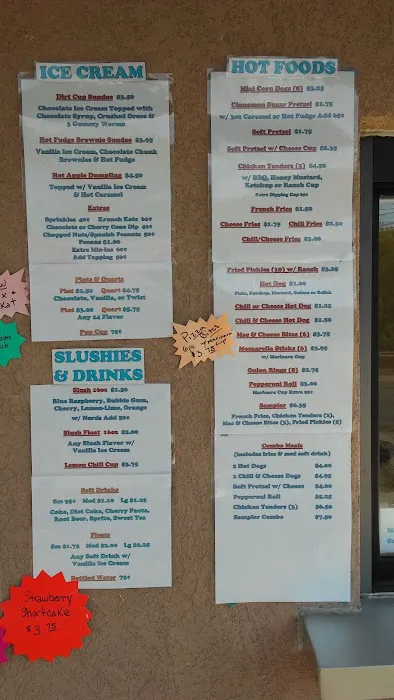 ICE CREAM
Dirt Cup Sundae $3.50
Chocolate Ice Cream Topped with
Chocolate Syrup, Crushed Oreos &
2 Gummy Worms
Hot Fudge Brownie Sundae $3.95
Vanilla Ice Cream, Chocolate Chunk
Brownies & Hot Fudge
Hot Apple Dumpling $4.50
Topped w/ Vanilla Ice Cream
& Hot Caramel
Extras
Sprinkles 40¢ Krunch Kote 40¢
Chocolate or Cherry Cone Dip 40¢
Chopped Nuts/Spanish Peanuts 50¢
Pecans $1.00
Extra Mix-ins 60¢
Add Topping 50¢
Pints & Quarts
Pint $2.50 Quart $4.75
Chocolate, Vanilla, or Twist
Pint $3.00 Quart $5.75
Any 24 Flavor
Pup Cup 75¢
SLUSHIES
& DRINKS
Slush 16oz $1.50
Blue Raspberry, Bubble Gum,
Cherry, Lemon-Lime, Orange
w/ Nerds Add 50¢
Slush Float 16oz $3.00
Any Slush Flavor w/
Vanilla Ice Cream
Lemon Chill Cup $3.75
Soft Drinks
Sm 95¢ Med $1.10 Lg $1.25
Coke, Diet Coke, Cherry Fanta,
Root Beer, Sprite, Sweet Tea
Floats
Sm $1.75 Med $2.00 Lg $2.25
Any Soft Drink w/
Vanilla Ice Cream
Bottled Water 75¢
Strawberry
Shortcake
$3.75
HOT FOODS
Mini Corn Dogs (6) $3.25
Cinnamon Sugar Pretzel $1.75
w/ 2oz Caramel or Hot Fudge Add 60¢
Soft Pretzel $1.75
Soft Pretzel w/ Cheese Cup $2.25
Chicken Tenders (3) $4.50
w/ BBQ, Honey Mustard,
Ketchup or Ranch Cup
Extra Dipping Cup 25¢
French Fries $1.50
Cheese Fries $1.75 Chili Fries $2.50
Chili/Cheese Fries $3.00
Fried Pickles (10) w/ Ranch $3.25
Hot Dog $1.00
Plain, Ketchup, Mustard, Onions or Relish
Chili or Cheese Hot Dog $1.25
Chili & Cheese Hot Dog $1.50
Mac & Cheese Bites (6) $3.75
Mozzarella Sticks (5) $3.95
w/ Marinara Cup
Onion Rings (8) $2.75
Pepperoni Roll $2.00
Marinara Cup Extra 50¢
Sampler $6.25
French Fries, Chicken Tenders (2),
Mac & Cheese Bites (3), Fried Pickles (5)
Combo Meals
(includes fries & med soft drink)
2 Hot Dogs $4.00
2 Chili & Cheese Dogs $4.95
Soft Pretzel w/ Cheese $4.00
Pepperoni Roll $5.25
Chicken Tenders (3) $6.50
Sampler Combo $7.50